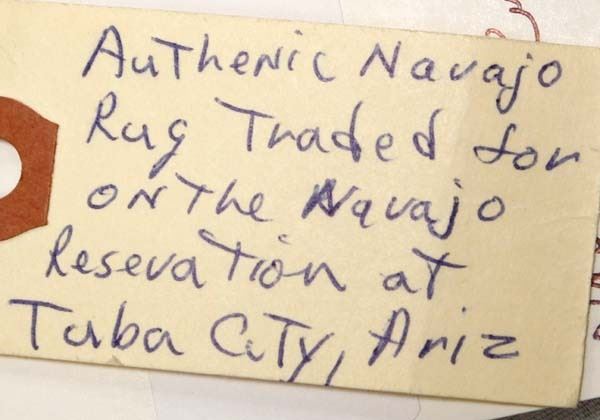 Authenic Navajo
Rug Traded for
on the Navajo
Resevation at
Tuba City, Ariz